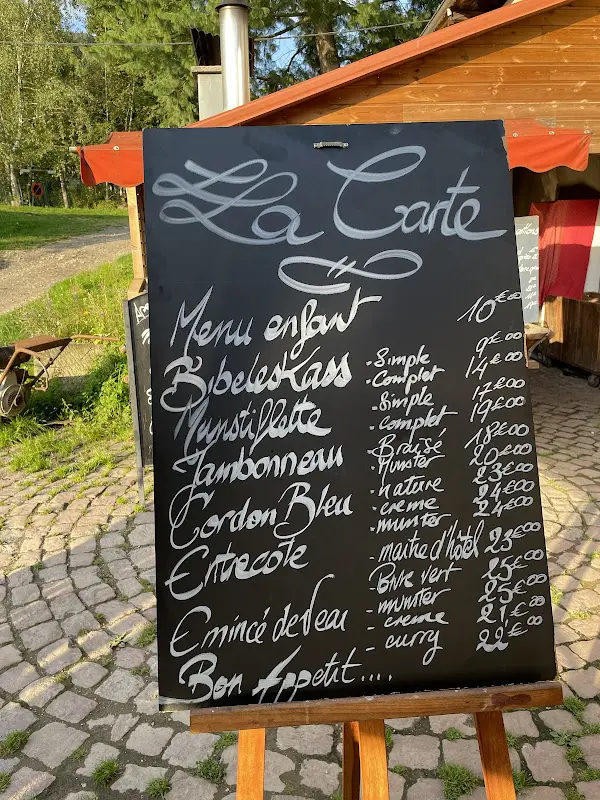 La Carte
Menu enfant 10€00
Bibeleskass - Simple 9€00
- Complet 14€00
Munstiflette - Simple 17€00
- complet 19€00
Jambonneau - Braisé 18€00
- Munster 20€00
Cordon Bleu - nature 23€00
- creme 24€00
- munster 24€00
Entrecote - maitre d'hôtel 23€00
- Poivre vert 25€00
- munster 25€00
Emincé de Veau - creme 21€00
- curry 22€00
Bon Appetit....